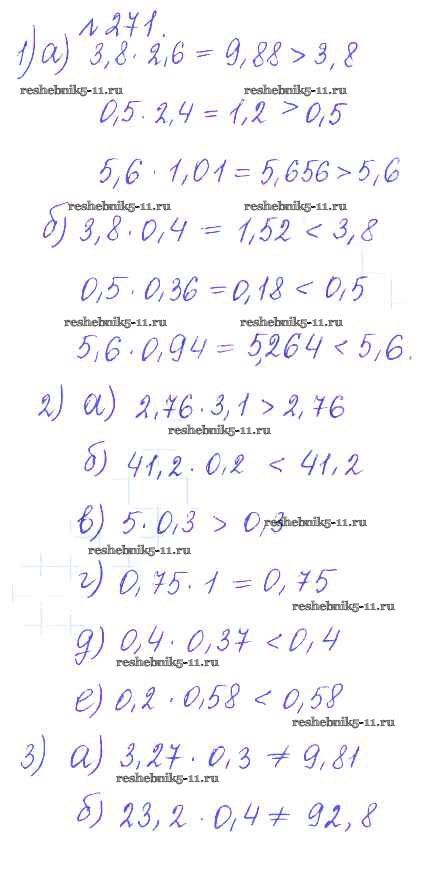 №271.
1) а) 3,8 · 2,6 = 9,88 > 3,8
reshebnik5-11.ru reshebnik5-11.ru
0,5 · 2,4 = 1,2 > 0,5
5,6 · 1,01 = 5,656 > 5,6
reshebnik5-11.ru reshebnik5-11.ru
б) 3,8 · 0,4 = 1,52 < 3,8
0,5 · 0,36 = 0,18 < 0,5
reshebnik5-11.ru reshebnik5-11.ru
5,6 · 0,94 = 5,264 < 5,6.
2) а) 2,76 · 3,1 > 2,76
reshebnik5-11.ru
б) 41,2 · 0,2 < 41,2
в) 5 · 0,3 > 0,3
reshebnik5-11.ru
reshebnik5-11.ru
г) 0,75 · 1 = 0,75
reshebnik5-11.ru
д) 0,4 · 0,37 < 0,4
reshebnik5-11.ru
е) 0,2 · 0,58 < 0,58
reshebnik5-11.ru
3) а) 3,27 · 0,3 ≠ 9,81
reshebnik5-11.ru
б) 23,2 · 0,4 ≠ 92,8